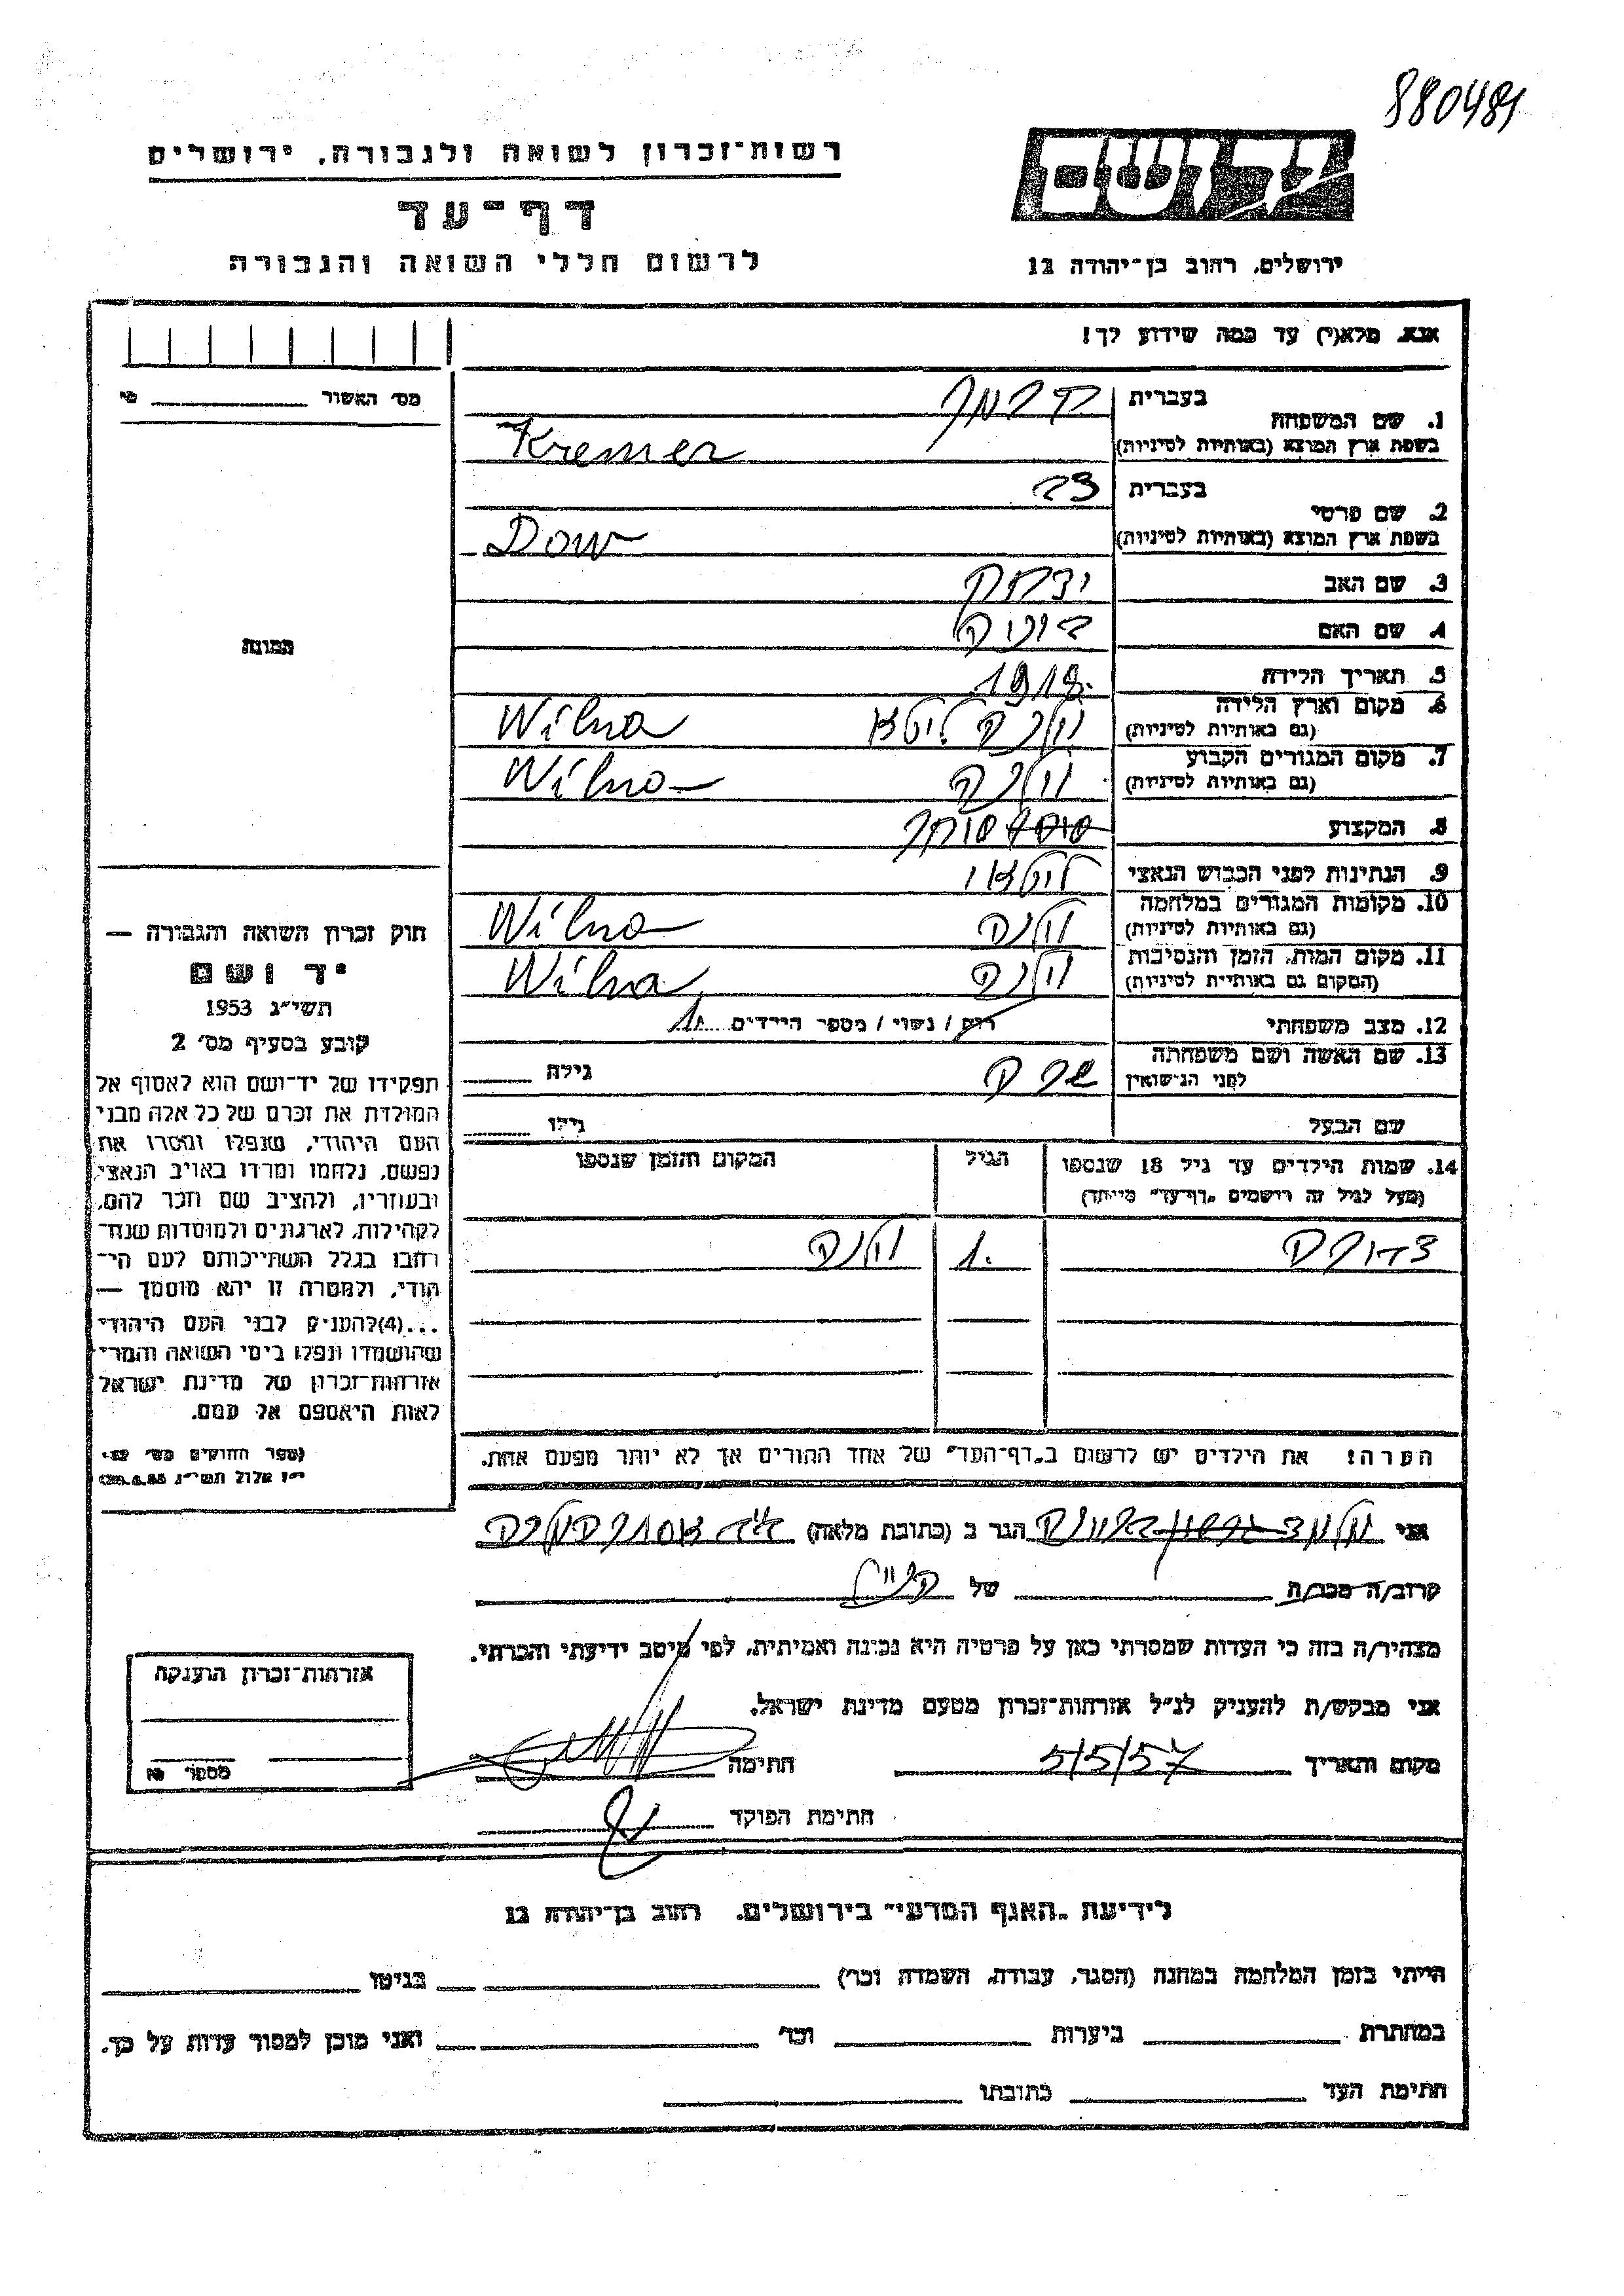 880481
רשות־זכרון לשואה ולגבורה, ירושלים
דף־עד
לרשום חללי השואה והגבורה
יד ושם
ירושלים, רחוב בן־יהודה 12
אנא, מלא(י) עד כמה שידוע לך!
מס׳ האשור
1. שם המשפחה
בעברית
קרמר
בשפת ארץ המוצא (באותיות לטיניות)
Kremer
2. שם פרטי
בעברית
דב
בשפת ארץ המוצא (באותיות לטיניות)
Dow
3. שם האב
יצחק
4. שם האם
5. תאריך הלידה
1918.
6. מקום וארץ הלידה
(גם באותיות לטיניות)
וילנה ליטא Wilna
7. מקום המגורים הקבוע
(גם באותיות לטיניות)
וילנה Wilna
8. המקצוע
סוחר
9. הנתינות לפני הכבוש הנאצי
ליטאי
10. מקומות המגורים במלחמה
(גם באותיות לטיניות)
וילנה Wilna
11. מקום המות, הזמן והנסיבות
(המקום גם באותיות לטיניות)
וילנה Wilna
12. מצב משפחתי
רוק / נשוי / מספר הילדים 1.
13. שם האשה ושם משפחתה
לפני הנישואין
שרה
גילה
שם הבעל
גילו
14. שמות הילדים עד גיל 18 שנספו
(מעל לגיל זה רושמים „דף־עד״ מיוחד)
הגיל
המקום והזמן שנספו
1. וילנה
הערה! את הילדים יש לרשום ב„דף־העד״ של אחד ההורים אך לא יותר מפעם אחת.
התמונה
חוק זכרון השואה והגבורה —
יד ושם
תשי״ג 1953
קובע בסעיף מס׳ 2
תפקידו של יד־ושם הוא לאסוף אל
המולדת את זכרם של כל אלה מבני
העם היהודי, שנפלו ומסרו את
נפשם, נלחמו ומרדו באויב הנאצי
ובעוזריו, ולהציב שם וזכר להם,
לקהילות, לארגונים ולמוסדות שנח־
רבו בגלל השתייכותם לעם הי־
הודי, ולמטרה זו יהא מוסמך —
...(4)להעניק לבני העם היהודי
שהושמדו ונפלו בימי השואה והמרי
אזרחות־זכרון של מדינת ישראל
לאות היאספם אל עמם.
(ספר החוקים מס׳ 132,
י״ז אלול תשי״ג 28.8.53)
אני הגר ב (כתובת מלאה)
קרוב/ה מכר/ה של
מצהיר/ה בזה כי העדות שמסרתי כאן על פרטיה היא נכונה ואמיתית, לפי מיטב ידיעתי והכרתי.
אני מבקש/ת להעניק לנ״ל אזרחות־זכרון מטעם מדינת ישראל.
מקום ותאריך 5/5/57 חתימה
חתימת הפוקד
אזרחות־זכרון הוענקה
מספר
לידיעת „האגף המדעי״ בירושלים, רחוב בן־יהודה 12
הייתי בזמן המלחמה במחנה (הסגר, עבודה, השמדה וכו׳) בגיטו
במחתרת ביערות וכו׳ ואני מוכן למסור עדות על כך.
חתימת העד כתובתו